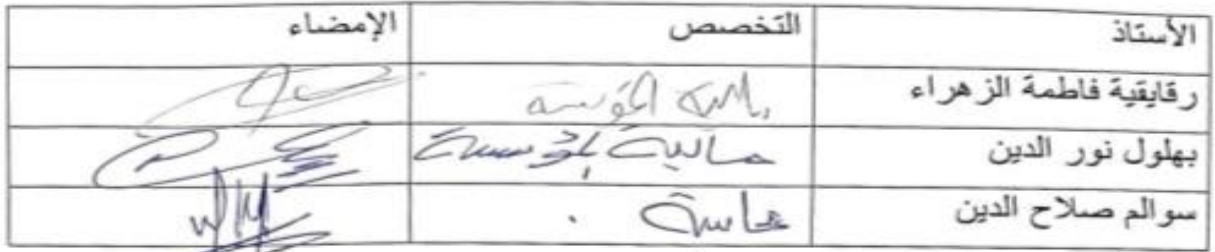 الأستاذ التخصص الإمضاء
رقايقية فاطمة الزهراء مالية المؤسسة
بهلول نور الدين مالية المؤسسة
سوالم صلاح الدين محاسبة .